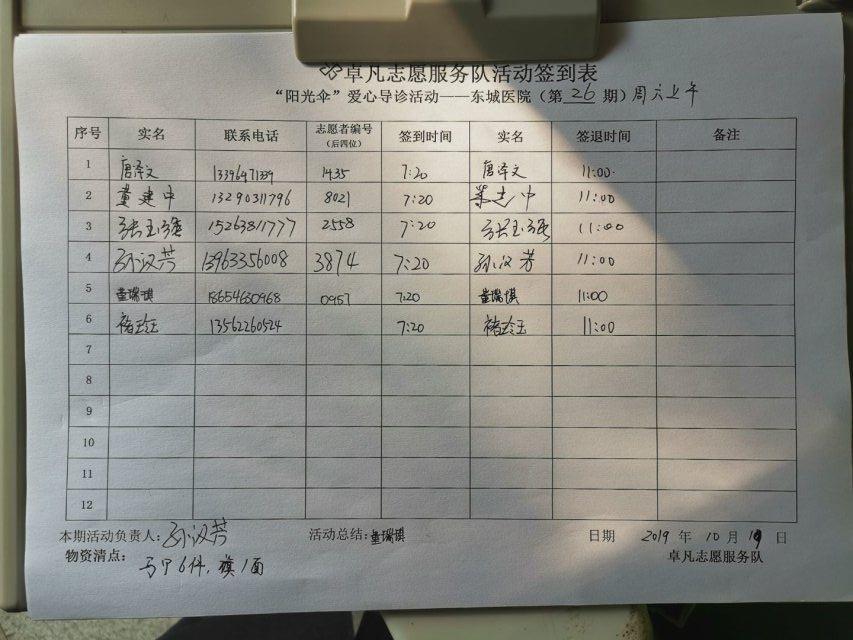 卓凡志愿服务队活动签到表
“阳光伞”爱心导诊活动——东城医院（第 26 期）周六上午
序号 实名 联系电话 志愿者编号（后四位） 签到时间 实名 签退时间 备注
1 唐泽文 1435 7:20 唐泽文 11:00
2 董建中 13290311796 8021 7:20 董建中 11:00
3 张玉强 15263811777 2558 7:20 张玉强 11:00
4 孙汉芳 13963356008 3874 7:20 孙汉芳 11:00
5 董瑞琪 18654630968 0957 7:20 董瑞琪 11:00
6 褚玲玉 13562260524 7:20 褚玲玉 11:00
7
8
9
10
11
12
本期活动负责人：孙汉芳 活动总结：董瑞琪 日期 2019 年 10 月 19 日
物资清点：马甲6件，旗1面 卓凡志愿服务队